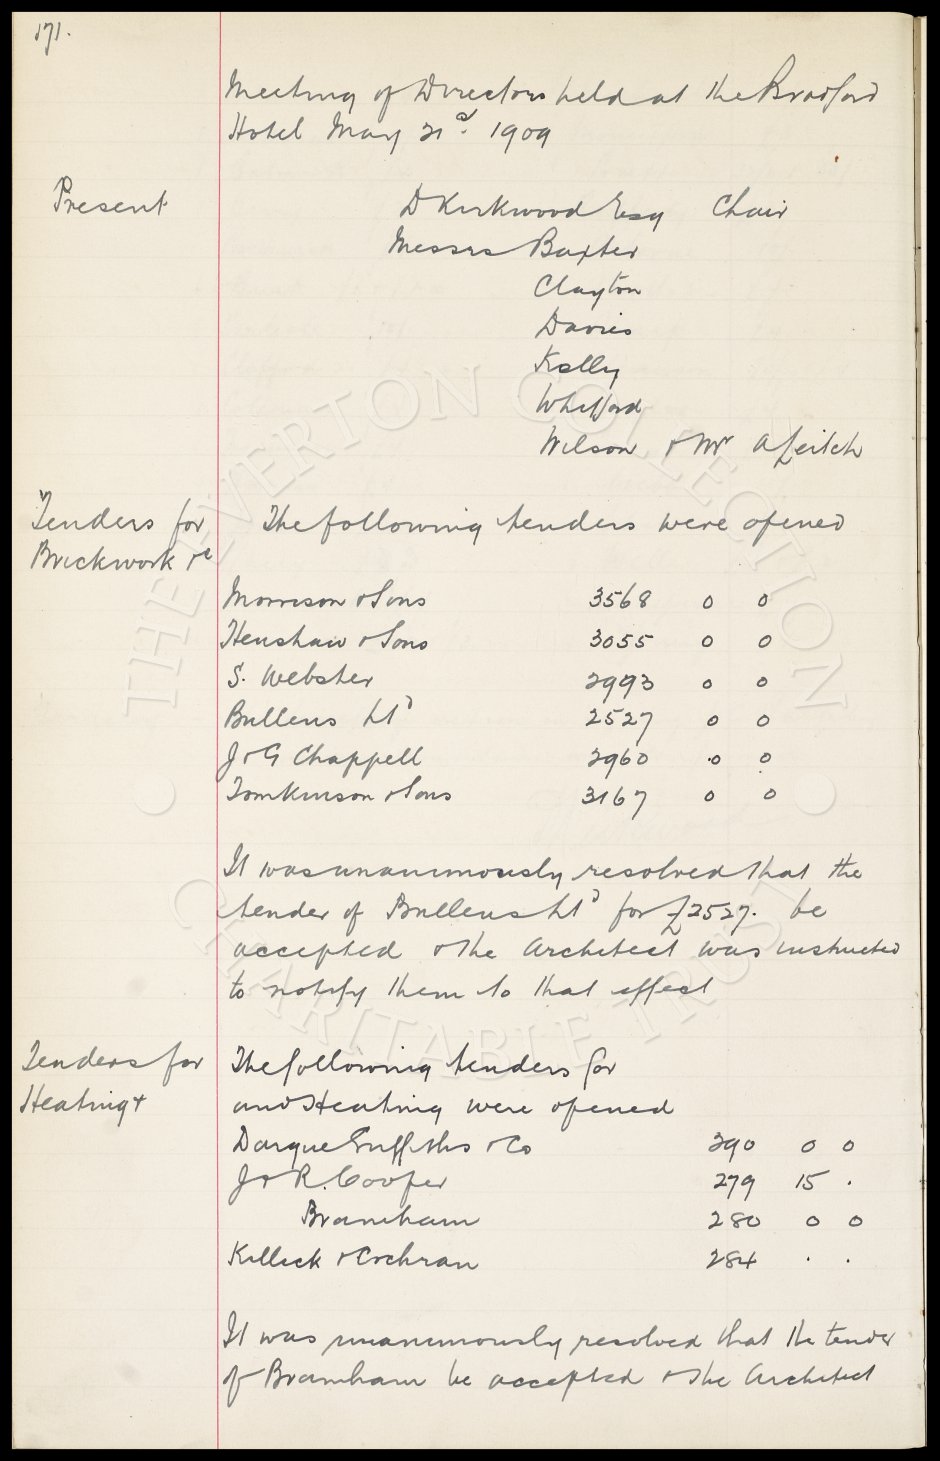 171.
Meeting of Directors held at the Bradford
Hotel May 21st 1909
Present
D Kirkwood Esq Chair
Messrs Baxter
Clayton
Davies
Kelly
Whitford
Wilson & Mr A Leitch
Tenders for
Brickwork &c
The following tenders were opened
Morrison & Sons 3568 0 0
Henshaw & Sons 3055 0 0
S. Webster 2993 0 0
Bullens Ltd 2527 0 0
J & G Chappell 2960 0 0
Tomkinson & Sons 3167 0 0
It was unanimously resolved that the
tender of Bullens Ltd for £2527. be
accepted & the Architect was instructed
to notify them to that effect
Tenders for
Heating &
The following tenders for
and Heating were opened
Dargue Griffiths & Co 290 0 0
J & R. Cooper 279 15 .
Bramham 280 0 0
Killick & Cochran 284 . .
It was unanimously resolved that the tender
of Bramham be accepted & the Architect
THE EVERTON COLLECTION
CHARITABLE TRUST